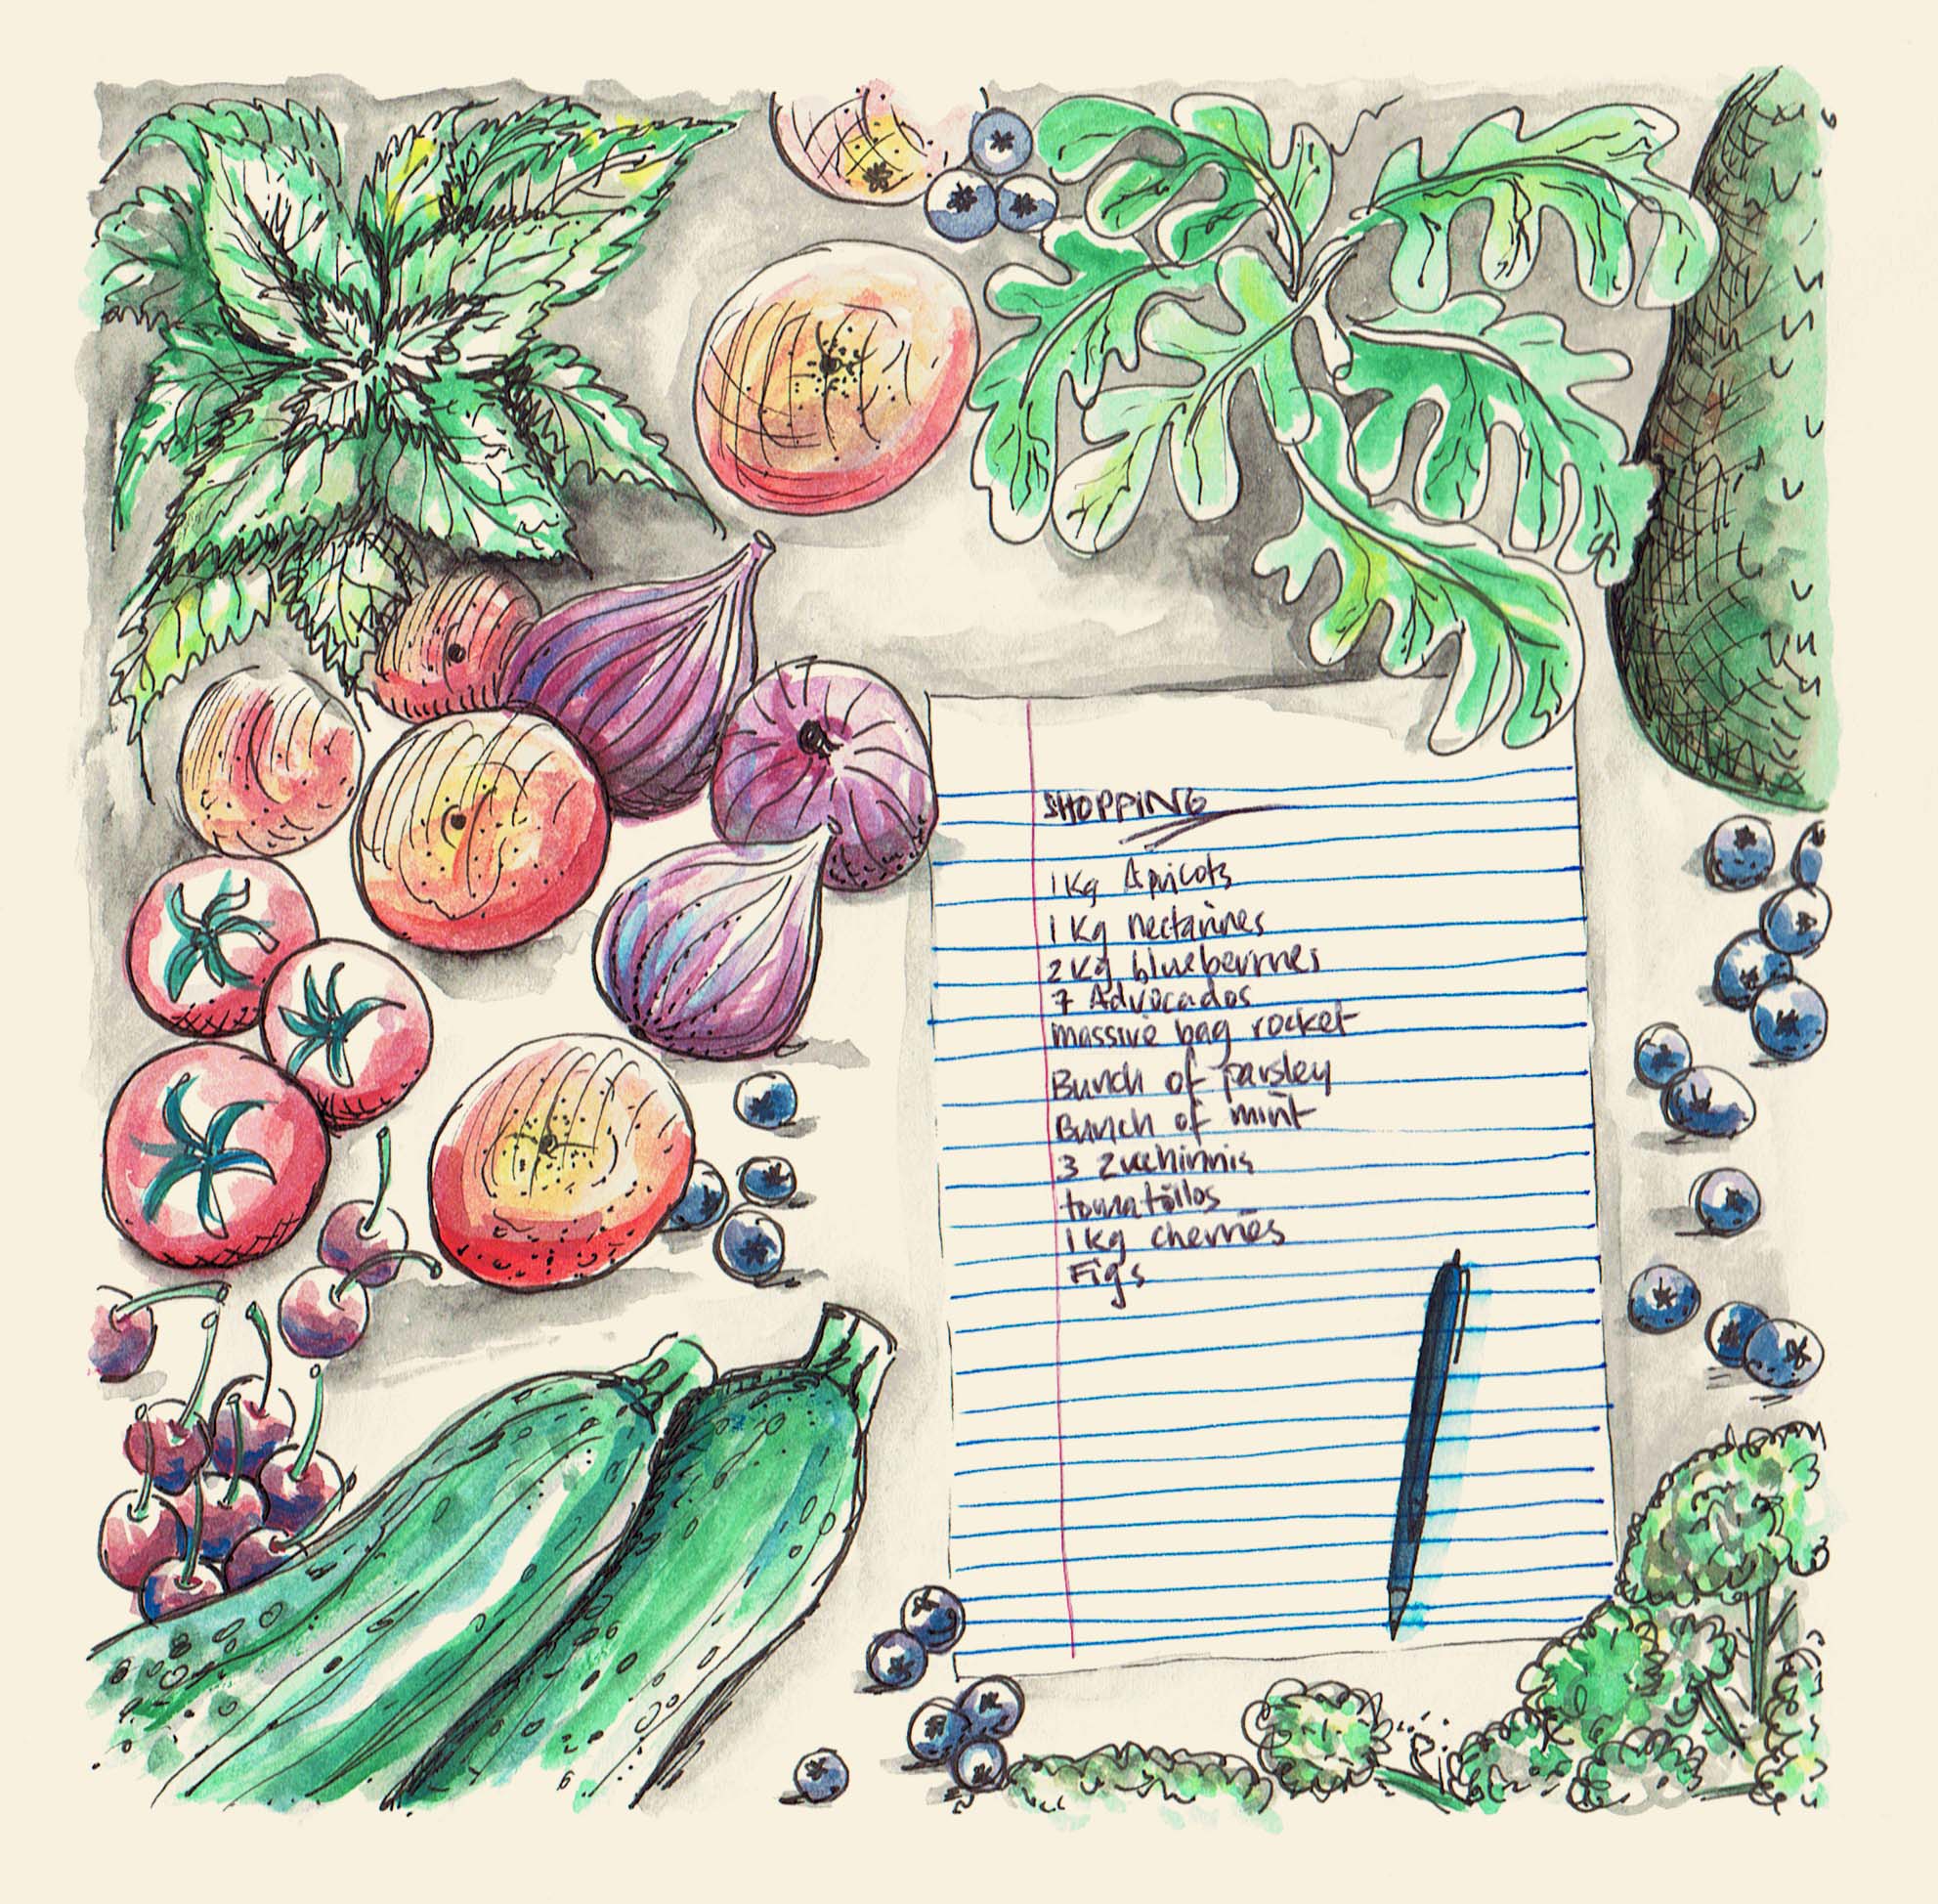 SHOPPING
1 Kg Apricots
1 Kg nectarines
2 Kg blueberries
7 Advocados
massive bag rocket
Bunch of parsley
Bunch of mint
3 zuchinnis
tomatoillos
1 kg cherries
Figs